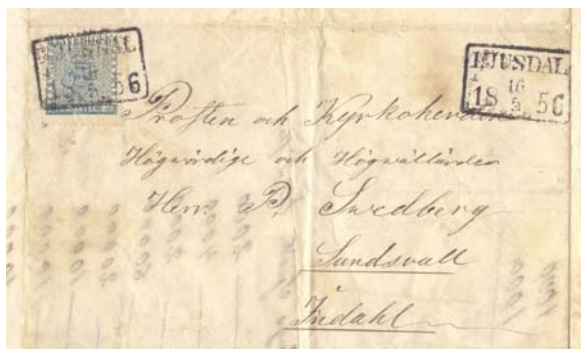 LJUSDAL
16
18 5 56
LJUSDAL
16
18 5 56
Prosten och Kyrkoherden
Högwördige och Högwällärde
Herr P. Swedberg
Sundswall
Indahl